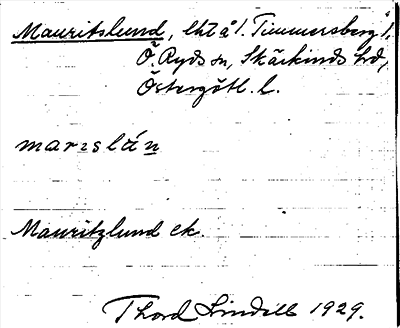 Mauritslund, lht å 1. Timmersberg 1,
Ö. Ryds sn, Skärkinds hd,
Östergötl. l.
marislán
Mauritzlund ek.
Thord Lindell 1929.